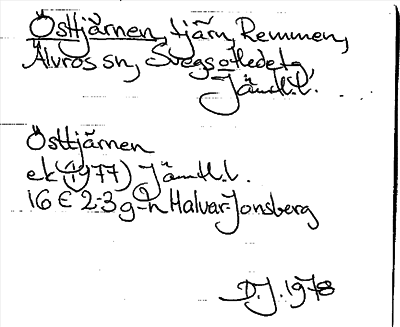 Östtjärnen, tjärn, Remmen,
Älvros sn, Svegs
Jämtl.l.
Östtjärnen
ek (1977) Jämtl.l.
16 E 2-3 g-h Halvar Jonsberg
D.J. 1978